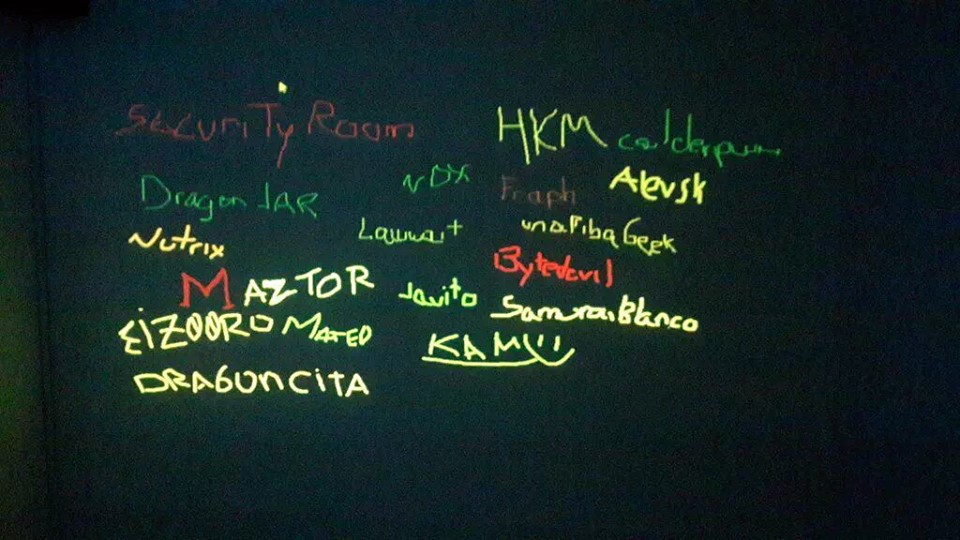 Security Room
HKM calderpwn
DragonJAR
NDX
Fraph
Alevsk
Nutrix
Lawwait
unaPibaGeek
MAZTOR
Bytedevil
Javito
SamuraiBlanco
MATEO
KAM
DRAGONCITA